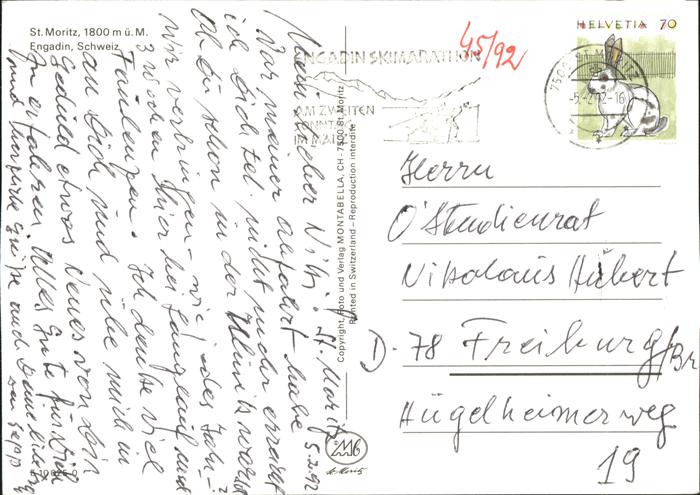 St. Moritz, 1800 m ü. M.
Engadin, Schweiz
St. Moritz 5.2.92
Mein lieber Niki!
Vor meiner Abfahrt habe
ich Dich tel. nicht mehr erreicht
Ob Du schon in der Klinik warst?
Wir verbringen – wie jedes Jahr –
3 Wochen hier bei
Faulenzen. Ich denke viel
an Dich und übe mich in
Geduld etwas Neues von Dir
zu erfahren. Alles Gute für Dich
und herzliche Grüße auch Deine lieben
von
Copyright, Foto und Verlag MONTABELLA, CH - 7500 St. Moritz
Printed in Switzerland – Reproduction interdite
45/92
ENGADIN SKIMARATHON
AM ZWEITEN
SONNTAG
IM MÄRZ
7500 ST. MORITZ
-5.-2.92-16
HELVETIA 70
Herrn
O'Studienrat
Nikolaus Hubert
D-78 Freiburg/Br
Hügelheimerweg
19